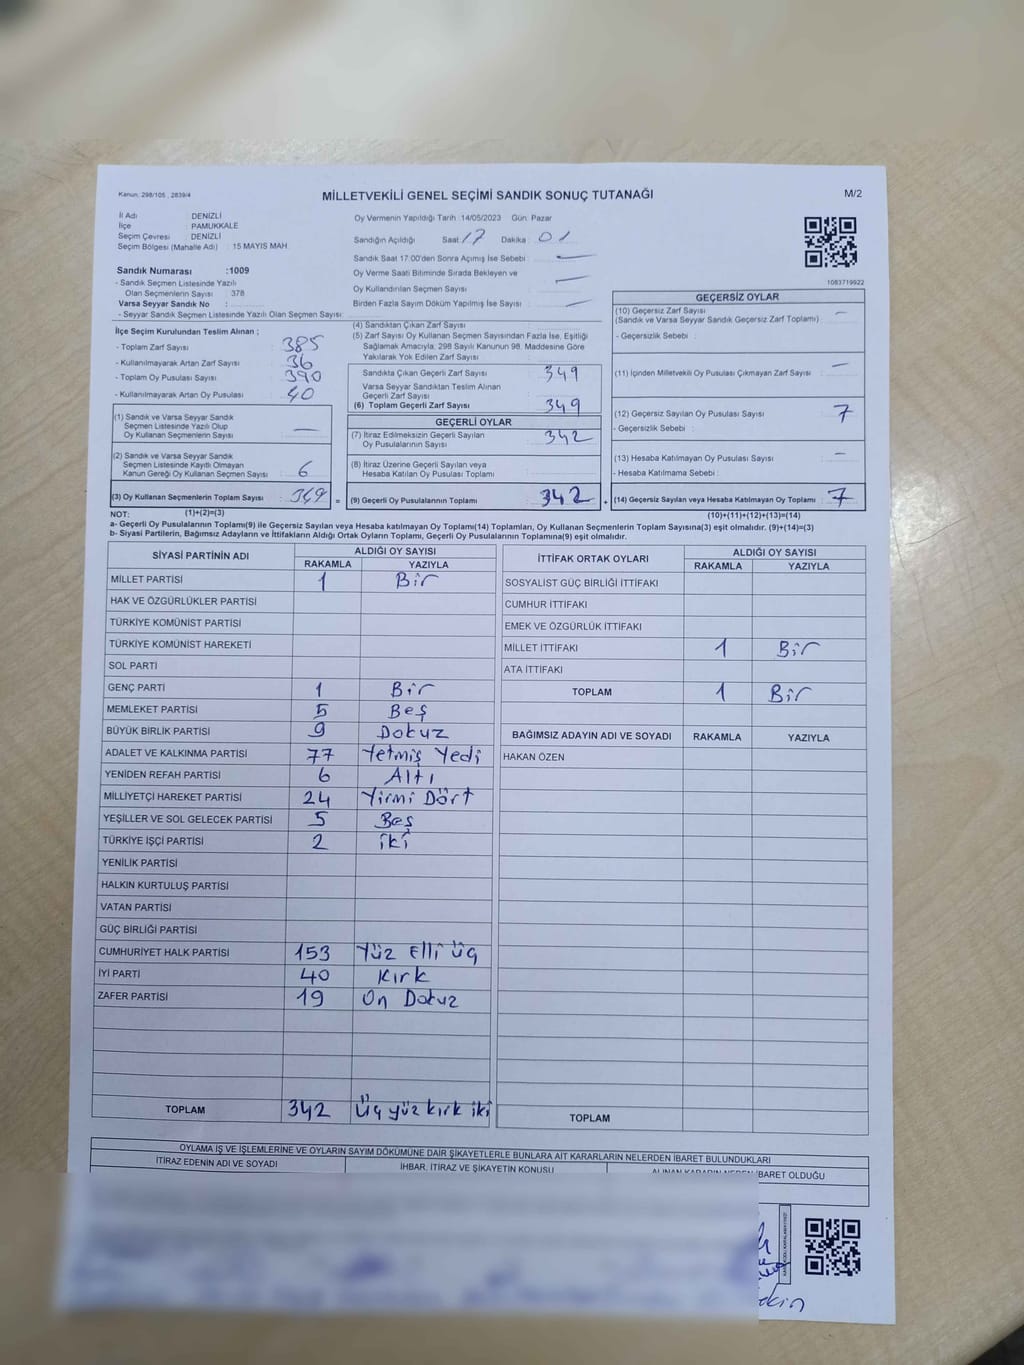 Kanun: 298/105 , 2839/4
MİLLETVEKİLİ GENEL SEÇİMİ SANDIK SONUÇ TUTANAĞI
M/2
İl Adı : DENİZLİ
İlçe : PAMUKKALE
Seçim Çevresi : DENİZLİ
Seçim Bölgesi (Mahalle Adı) : 15 MAYIS MAH.
Oy Vermenin Yapıldığı Tarih :14/05/2023 Gün: Pazar
Sandığın Açıldığı Saat: 17 Dakika : 01
Sandık Saat 17:00'den Sonra Açımış İse Sebebi : —
Oy Verme Saati Bitiminde Sırada Bekleyen ve
Oy Kullandırılan Seçmen Sayısı : —
Birden Fazla Sayım Döküm Yapılmış İse Sayısı : —
1083719922
Sandık Numarası :1009
- Sandık Seçmen Listesinde Yazılı
Olan Seçmenlerin Sayısı : 378
Varsa Seyyar Sandık No :
- Seyyar Sandık Seçmen Listesinde Yazılı Olan Seçmen Sayısı:
İlçe Seçim Kurulundan Teslim Alınan ;
- Toplam Zarf Sayısı : 385
- Kullanılmayarak Artan Zarf Sayısı : 36
- Toplam Oy Pusulası Sayısı : 390
- Kullanılmayarak Artan Oy Pusulası : 40
(1) Sandık ve Varsa Seyyar Sandık
Seçmen Listesinde Yazılı Olup
Oy Kullanan Seçmenlerin Sayısı : —
(2) Sandık ve Varsa Seyyar Sandık
Seçmen Listesinde Kayıtlı Olmayan
Kanun Gereği Oy Kullanan Seçmen Sayısı : 6
(3) Oy Kullanan Seçmenlerin Toplam Sayısı : 349 =
(4) Sandıktan Çıkan Zarf Sayısı :
(5) Zarf Sayısı Oy Kullanan Seçmen Sayısından Fazla İse, Eşitliği
Sağlamak Amacıyla, 298 Sayılı Kanunun 98. Maddesine Göre
Yakılarak Yok Edilen Zarf Sayısı :
Sandıkta Çıkan Geçerli Zarf Sayısı : 349
Varsa Seyyar Sandıktan Teslim Alınan
Geçerli Zarf Sayısı :
(6) Toplam Geçerli Zarf Sayısı : 349
GEÇERLİ OYLAR
(7) İtiraz Edilmeksizin Geçerli Sayılan
Oy Pusulalarının Sayısı : 342
(8) İtiraz Üzerine Geçerli Sayılan veya
Hesaba Katılan Oy Pusulası Toplamı :
(9) Geçerli Oy Pusulalarının Toplamı : 342 +
GEÇERSİZ OYLAR
(10) Geçersiz Zarf Sayısı : —
(Sandık ve Varsa Seyyar Sandık Geçersiz Zarf Toplamı)
- Geçersizlik Sebebi :
(11) İçinden Milletvekili Oy Pusulası Çıkmayan Zarf Sayısı : —
(12) Geçersiz Sayılan Oy Pusulası Sayısı : 7
- Geçersizlik Sebebi :
(13) Hesaba Katılmayan Oy Pusulası Sayısı : —
- Hesaba Katılmama Sebebi :
(14) Geçersiz Sayılan veya Hesaba Katılmayan Oy Toplamı : 7
NOT: (1)+(2)=(3) (10)+(11)+(12)+(13)=(14)
a- Geçerli Oy Pusulalarının Toplamı(9) ile Geçersiz Sayılan veya Hesaba katılmayan Oy Toplamı(14) Toplamları, Oy Kullanan Seçmenlerin Toplam Sayısına(3) eşit olmalıdır. (9)+(14)=(3)
b- Siyasi Partilerin, Bağımsız Adayların ve İttifakların Aldığı Ortak Oyların Toplamı, Geçerli Oy Pusulalarının Toplamına(9) eşit olmalıdır.
SİYASİ PARTİNİN ADI ALDIĞI OY SAYISI
RAKAMLA YAZIYLA
MİLLET PARTİSİ 1 Bir
HAK VE ÖZGÜRLÜKLER PARTİSİ
TÜRKİYE KOMÜNİST PARTİSİ
TÜRKİYE KOMÜNİST HAREKETİ
SOL PARTİ
GENÇ PARTİ 1 Bir
MEMLEKET PARTİSİ 5 Beş
BÜYÜK BİRLİK PARTİSİ 9 Dokuz
ADALET VE KALKINMA PARTİSİ 77 Yetmiş Yedi
YENİDEN REFAH PARTİSİ 6 Altı
MİLLİYETÇİ HAREKET PARTİSİ 24 Yirmi Dört
YEŞİLLER VE SOL GELECEK PARTİSİ 5 Beş
TÜRKİYE İŞÇİ PARTİSİ 2 iki
YENİLİK PARTİSİ
HALKIN KURTULUŞ PARTİSİ
VATAN PARTİSİ
GÜÇ BİRLİĞİ PARTİSİ
CUMHURİYET HALK PARTİSİ 153 Yüz Elli üç
İYİ PARTİ 40 Kırk
ZAFER PARTİSİ 19 On Dokuz
TOPLAM 342 Üç yüz kırk iki
İTTİFAK ORTAK OYLARI ALDIĞI OY SAYISI
RAKAMLA YAZIYLA
SOSYALİST GÜÇ BİRLİĞİ İTTİFAKI
CUMHUR İTTİFAKI
EMEK VE ÖZGÜRLÜK İTTİFAKI
MİLLET İTTİFAKI 1 Bir
ATA İTTİFAKI
TOPLAM 1 Bir
BAĞIMSIZ ADAYIN ADI VE SOYADI RAKAMLA YAZIYLA
HAKAN ÖZEN
TOPLAM
OYLAMA İŞ VE İŞLEMLERİNE VE OYLARIN SAYIM DÖKÜMÜNE DAİR ŞİKAYETLERLE BUNLARA AİT KARARLARIN NELERDEN İBARET BULUNDUKLARI
İTİRAZ EDENİN ADI VE SOYADI İHBAR, İTİRAZ VE ŞİKAYETİN KONUSU ALINAN KARARIN NEDEN İBARET OLDUĞU